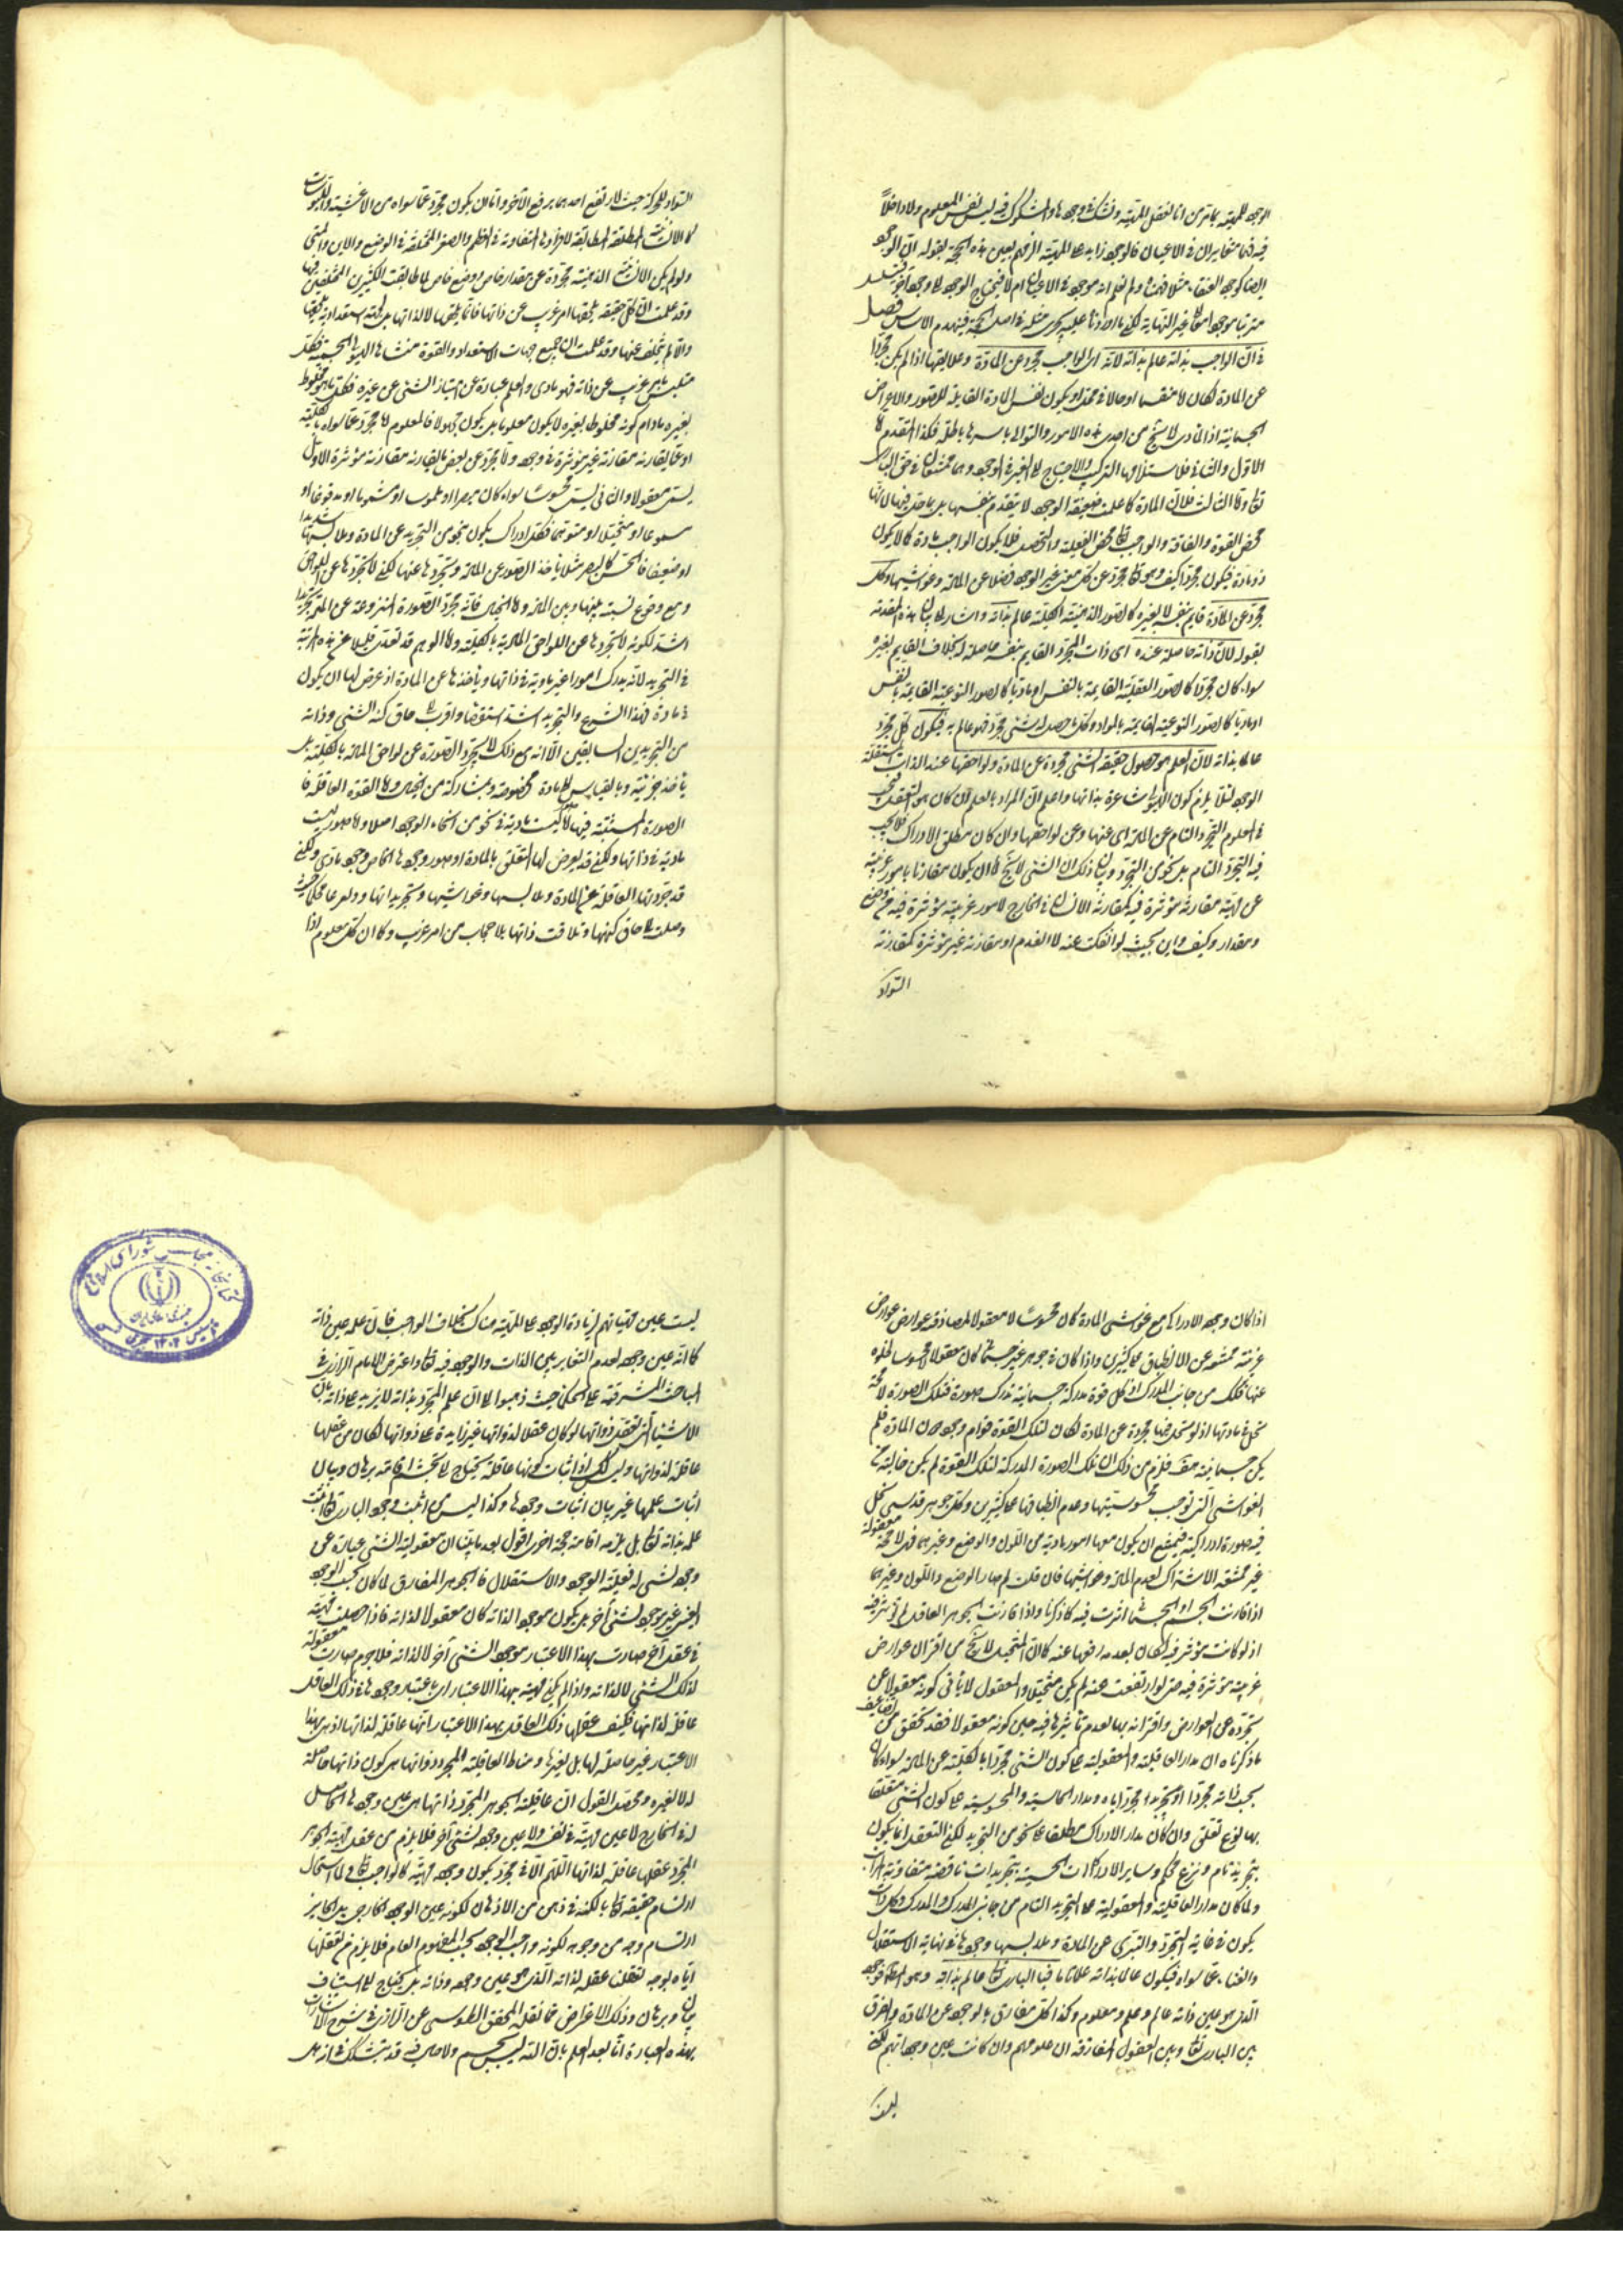 الوجود للمهية بما ترى انا نعقل المهية ونشك فى وجودها والمشكوك فيه ليس نفس المعلوم ولا داخلا
فيه فهما متغايران فى الاعيان فالوجود زايد على المهية الزمهم بعين هذه الحجة بقوله ان الوجود
ايضا كوجود العنقاء مثلا فهمناه ولم نعلم انه موجود فى الاعيان ام لا فيحتاج الوجود الى وجود آخر فيتسلسل
مترتبا موجودا معا الى غير النهاية لكن ما اوردنا عليه يجرى مثله فى اصل الحجة فينهدم الاساس فصل
فى ان الواجب بذاته عالم بذاته لانه اى الواجب مجرد عن المادة وعلايقها اذ لو لم يكن مجردا
عن المادة لكان لا منقسما او حالا فى محل او يكون نفس المادة القابلة للصور والاعراض
الجسمانية اذ المادى لا يخ من احدى هذه الامور والتوالى باسرها باطلة فكذا المقدم اما
الاول والثانى فلاستلزامها التركيب والاحتياج الى الغير فى الوجود وهما ممتنعان فى حق البارى
تعالى واما الثالث فلان المادة كما علمت ضعيفة الوجود لا يتقدم بنفسها بل بما حل فيها لانها
محض القوة والفاقة والواجب تعالى محض الفعلية والتحصل فلا يكون الواجب مادة كما لا يكون
ذو مادة فيكون مجردا كيف وهو تعالى مجرد عن كل معنى غير الوجود فضلا عن المادة وغواشيها وكل
مجرد عن المادة قايم بنفسه لا بغيره كالصور الذهنية الكلية عالم بذاته واشار الى بيان هذه المقدمة
بقوله لان ذاته حاصلة عنده اى ذات المجرد القايم بنفسه حاصلة له بخلاف القايم بغيره
سواء كان مجردا كالصور العقلية القايمة بالنفس او ماديا كالصور النوعية القايمة بالنفس
او ماديا كالصور النوعية القايمة بالمواد وكل ما حصل له شئ مجرد فهو عالم به فيكون كل مجرد
عالما بذاته لان العلم هو حصول حقيقة الشئ مجردة عن المادة ولواحقها عند الذات المستقلة
الوجود لئلا يلزم كون الهيولى شاعرة بذاتها واعلم ان المراد بالعلم ان كان هو التعقل فيجب
فى المعلوم التجرد التام عن المادة اى عنها وعن لواحقها وان كان مطلق الادراك فلا يجب
فيه التجرد التام بل نحو من التجرد وبيان ذلك ان الشئ لا يخ اما ان يكون مقارنا بامور غريبة
عن مهيته مقارنة مؤثرة فيه كمقارنة الانسان فى الخارج لامور غريبة مؤثرة فيه من وضع
ومقدار وكيف واين بحيث لو انفكت عنه لانعدم او مقارنة غير مؤثرة كمقارنة
السواد
السواد للحركة حيث لا يرتفع احدهما برفع الآخر واما ان يكون مجردا عما سواه من الاغشية والملبوسات
كالانسانية المطلقة المطابقة لافراد المتفاوتة فى العظم والصغر المختلفة فى الوضع والاين والمتى
ولو لم يكن الانسانية الذهنية مجردة عن مقدار خاص ووضع خاص لما طابقت الكثيرين المختلفين فيها
وقد علمت ان كل حقيقة يلحقها امر غريب عن ذاتها فانما يلحقها لا لذاتها بل لجهة استعدادية يلحقها
والا لم يتخلف عنها وقد علمت ان جميع جهات الاستعداد والقوة منشاها الهيولى الجسمية فكل
متلبس بامر غريب عن ذاته فهو مادى والعلم عبارة عن امتياز الشئ عن غيره فكل ما هو مخلوط
بغيره مادام كونه مخلوطا بغيره لا يكون معلوما بل يكون مجهولا فالمعلوم اما مجرد عما سواه بالكلية
او عما يقارنه مقارنة غير مؤثرة فى وجوده واما مجرد عن بعض ما يقارنه مقارنة مؤثرة الاول
يسمى معقولا والثانى يسمى محسوسا سواء كان مبصرا او ملموسا او مشموما او مذوقا او
مسموعا او متخيلا او متوهما فكل ادراك يكون بنحو من التجريد عن المادة وملابسها شديدا
او ضعيفا فالحس كالبصر مثلا ياخذ الصور عن المادة ويتجردها عنها لكن لا تجردها عن اللواحق
ومع وقوع نسبة بينها وبين المادة واما الخيال فانه يجرد الصورة المنزوعة عن المادة تجريدا
اشد لكونه لا يجردها عن اللواحق المادية بالكلية واما الوهم قد تعدى قليلا عن هذه المرتبة
فى التجريد لانه يدرك امورا غير مادية فى ذاتها وياخذها عن المادة اذ عرض لها ان يكون
فى مادة فهذا النزع والتجريد اشد استقصاء واقرب الى حاق كنه الشئ وذاته
من التجريدين السابقين الا انه مع ذلك لا يجرد الصورة عن لواحق المادة بالكلية بل
ياخذ جزئية وبالقياس الى مادة مخصوصة وبمشاركة من الخيال واما القوة العاقلة فا
الصورة المستثبتة فيها اما ليست مادية فى نحو من انحاء الوجود اصلا واما صور ليست
مادية فى ذاتها ولكن قد يعرض لها التعلق بالمادة او صور وجودها الخاص وجود مادى ولكن
قد جردتها العاقلة عن المادة وملابسها وغواشيها وتجريداتها
وصلت الى حاق كنهها وتلاقت ذاتها بلا حجاب من امر غريب وكما ان كل معلوم اذا
اذا كان وجوده الادراكى مع غواشى المادة كان محسوسا لا معقولا لمصادفة عوارض
غريبة ممنوعة عن الانطباق على كثيرين واذا كان فى جوهر غير جسمانى كان معقولا لا محسوسا لخلوه
عنها فكذلك من جانب المدرك اذ كل قوة مدركة جسمانية تدرك صورة فتلك الصورة لا محة
تحل فى مادتها اذ لو تحل فيها مجردة عن المادة لكان لتلك القوة قوام وجود دون المادة فلم
يكن جسمانية هف فلزم من ذلك ان تلك الصورة المدركة لتلك القوة لم يكن خالية عن
الغواشى التى توجب محسوسيتها وعدم انطباقها على كثيرين وكل جوهر قدسى تحل
فيه صورة ادراكية فيمتنع ان يكون معها امور مادية من اللون والوضع وغيرهما فهى لا محة معقولة
غير ممتنعة الاشتراك لعدم المادة وغواشيها فان قلت لم صار الوضع واللون وغيرهما
اذا قارنت الجسم او الجسمانى اثرت فيه كما ذكرنا واذا قارنت الجوهر العاقل لم تؤثر فيه
اذ لو كانت مؤثرة فيه لكان بعدمه رفعها عنه كما ان المتخيل لا يخ من اقتران عوارض
غريبة مؤثرة فيه حتى لو ارتفعت عنه لم يكن متخيلا والمعقول لا يأبى كونه معقولا عن
تجرده عن العوارض واقترانه بها لعدم تأثيرها فيه حين كونه معقولا فقد تحقق من تضاعيف
ما ذكرناه ان مدار العاقلية والمعقولية على كون الشئ مجردا بالكلية عن المادة سواء كان
بحسب ذاته مجردا او بتجريد مجرد اياه ومدار الحاسية والمحسوسية على كون الشئ متعلقا
بها نوع تعلق وان كان مدار الادراك مطلقا على نحو من التجريد لكن التعقل انما يكون
بتجريد تام ونزع محكم وساير الادراكات الحسية بتجريدات ناقصة متفاوتة المراتب
ولما كان مدار العاقلية والمعقولية هو التجريد التام من جانبى المدرك والمدرك وكل ذات
يكون فى غاية التجرد والتبرى عن المادة وملابسها وجودها فى نهاية الاستقلال
والغناء عما سواه فيكون عالما بذاته علما تاما فالبارى تعالى عالم بذاته وهو المط فوجوده
الذى هو عين ذاته عالم وعلم ومعلوم وكذا كل مفارق بالوجود عن المادة والفرق
بين البارى تعالى وبين العقول المفارقة ان علومهم وان كانت عين وجوداتهم لكن
ليست
ليست عين مهياتهم لزيادة الوجود على المهية هناك بخلاف الواجب فان علمه عين ذاته
كما انه عين وجوده لعدم التغاير بين الذات والوجود فيه تعالى واعترض الامام الرازى فى
المباحث المشرقية على الحكماء حيث ذهبوا الى ان علم المجرد بذاته لا يزيد على ذاته بان
الاشياء التى تعقل ذواتها لو كان عقلا لذواتها غير زايدة على ذواتها لكان من عقلها
عاقلة لذواتها وليس كك اذ اثبات كونها عاقلة يحتاج الى تجشم اقامة برهان وبيان
اثبات علمها غير بيان اثبات وجودها وكذا ليس من اثبت وجود البارى تعالى اثبت
علمه بذاته تعالى بل يلزمه اقامة حجة اخرى اقول بعد ما بيّنا ان معقولية الشئ عبارة عن
وجوده لشئ له فعلية الوجود والاستقلال فالجوهر المفارق لما كان بحسب الوجود
العينى غير موجود لشئ آخر بل يكون موجودا لذاته كان معقولا لذاته فاذا حصلت مهيته
فى عقل آخر صارت بهذا الاعتبار موجودا لشئ آخر لا لذاته فلا جرم صارت معقولة
لذلك الشئ لا لذاته واذا لم يكن مهيته بهذا الاعتبار اى باعتبار وجودها فى ذلك العاقل
عاقلة لذاتها فكيف عقلها ذلك العاقل بهذا الاعتبار انها عاقلة لذاتها اذ هى بهذا
الاعتبار غير حاصلة لها بل لغيرها ومناط العاقلية المجرد ذواتها هى كون ذاتها حاصلة
له لا لغيره ومحصل القول ان عاقلية الجوهر المجرد ذاتها هى عين وجودها الحاصل
له فى الخارج لا عين مهيته فى نفسه ولا عين وجوده لشئ آخر فلا يلزم من عقل مهية الجوهر
المجرد عقلها عاقلة لذاتها اللهم الا فى مجرد يكون وجوده مهيته كالواجب تعالى ولما استحال
ارتسام حقيقته تعالى بالكنه فى ذهن من الاذهان لكونه عين الوجود الخارجى بل الجايز
ارتسام وجه من وجوهه لكونه واجب الوجود بحسب المفهوم العام فلا يلزم من تعقلنا
اياه بوجه تعقلنا عقله لذاته الذى هو عين وجوده وذاته بل يحتاج الى استيناف
بيان وبرهان وذلك الاعتراض مما نقله المحقق الطوسى عن الرازى فى شرح الاشارات
بهذه العبارة انا بعد العلم بان الله ليس بجسم ولا حال فيه قد يتشكك فى انه هل
كتابخانه مجلس شوراى اسلامى